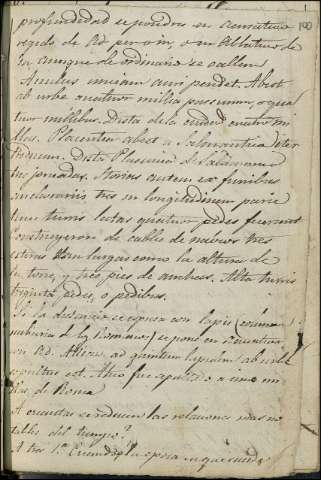 profundidad se pondra en Acusativo
regido de Ad per o in, o en Ablativo de
In, aunque de ordinario se callen
Anulus unciam auri pendet. Abest
ab urbe quatuor millia passuum, o qua
tuor millibus. Dista de la ciudad cuatro mi
llas. Placentia abest a Salmantica iter
triduum. Dista Plasencia de Salamanca
tres jornadas. Storias autem ex funibus
anclariis tres in longitudinem parie
tum turris latas quatuor pedes fecerunt
Construyeron de cables de navios tres
esteras tan largas como la altura de
la torre, y tres pies de anchas. Alta turris
triginta pedes, o pedibus.
Si la distancia se espresa con lapis (colum
miliaria de los Romanos) se pone en Acusativo
con Ad. Atticus ad quintum lapidem ab urbe
sepultus est. Atico fue sepultado a cinco mi
llas de Roma
A cuantas se reducen las relaciones mas no
tables del tiempo?
A tres 1ª Cuando, la epoca en que sucede
100